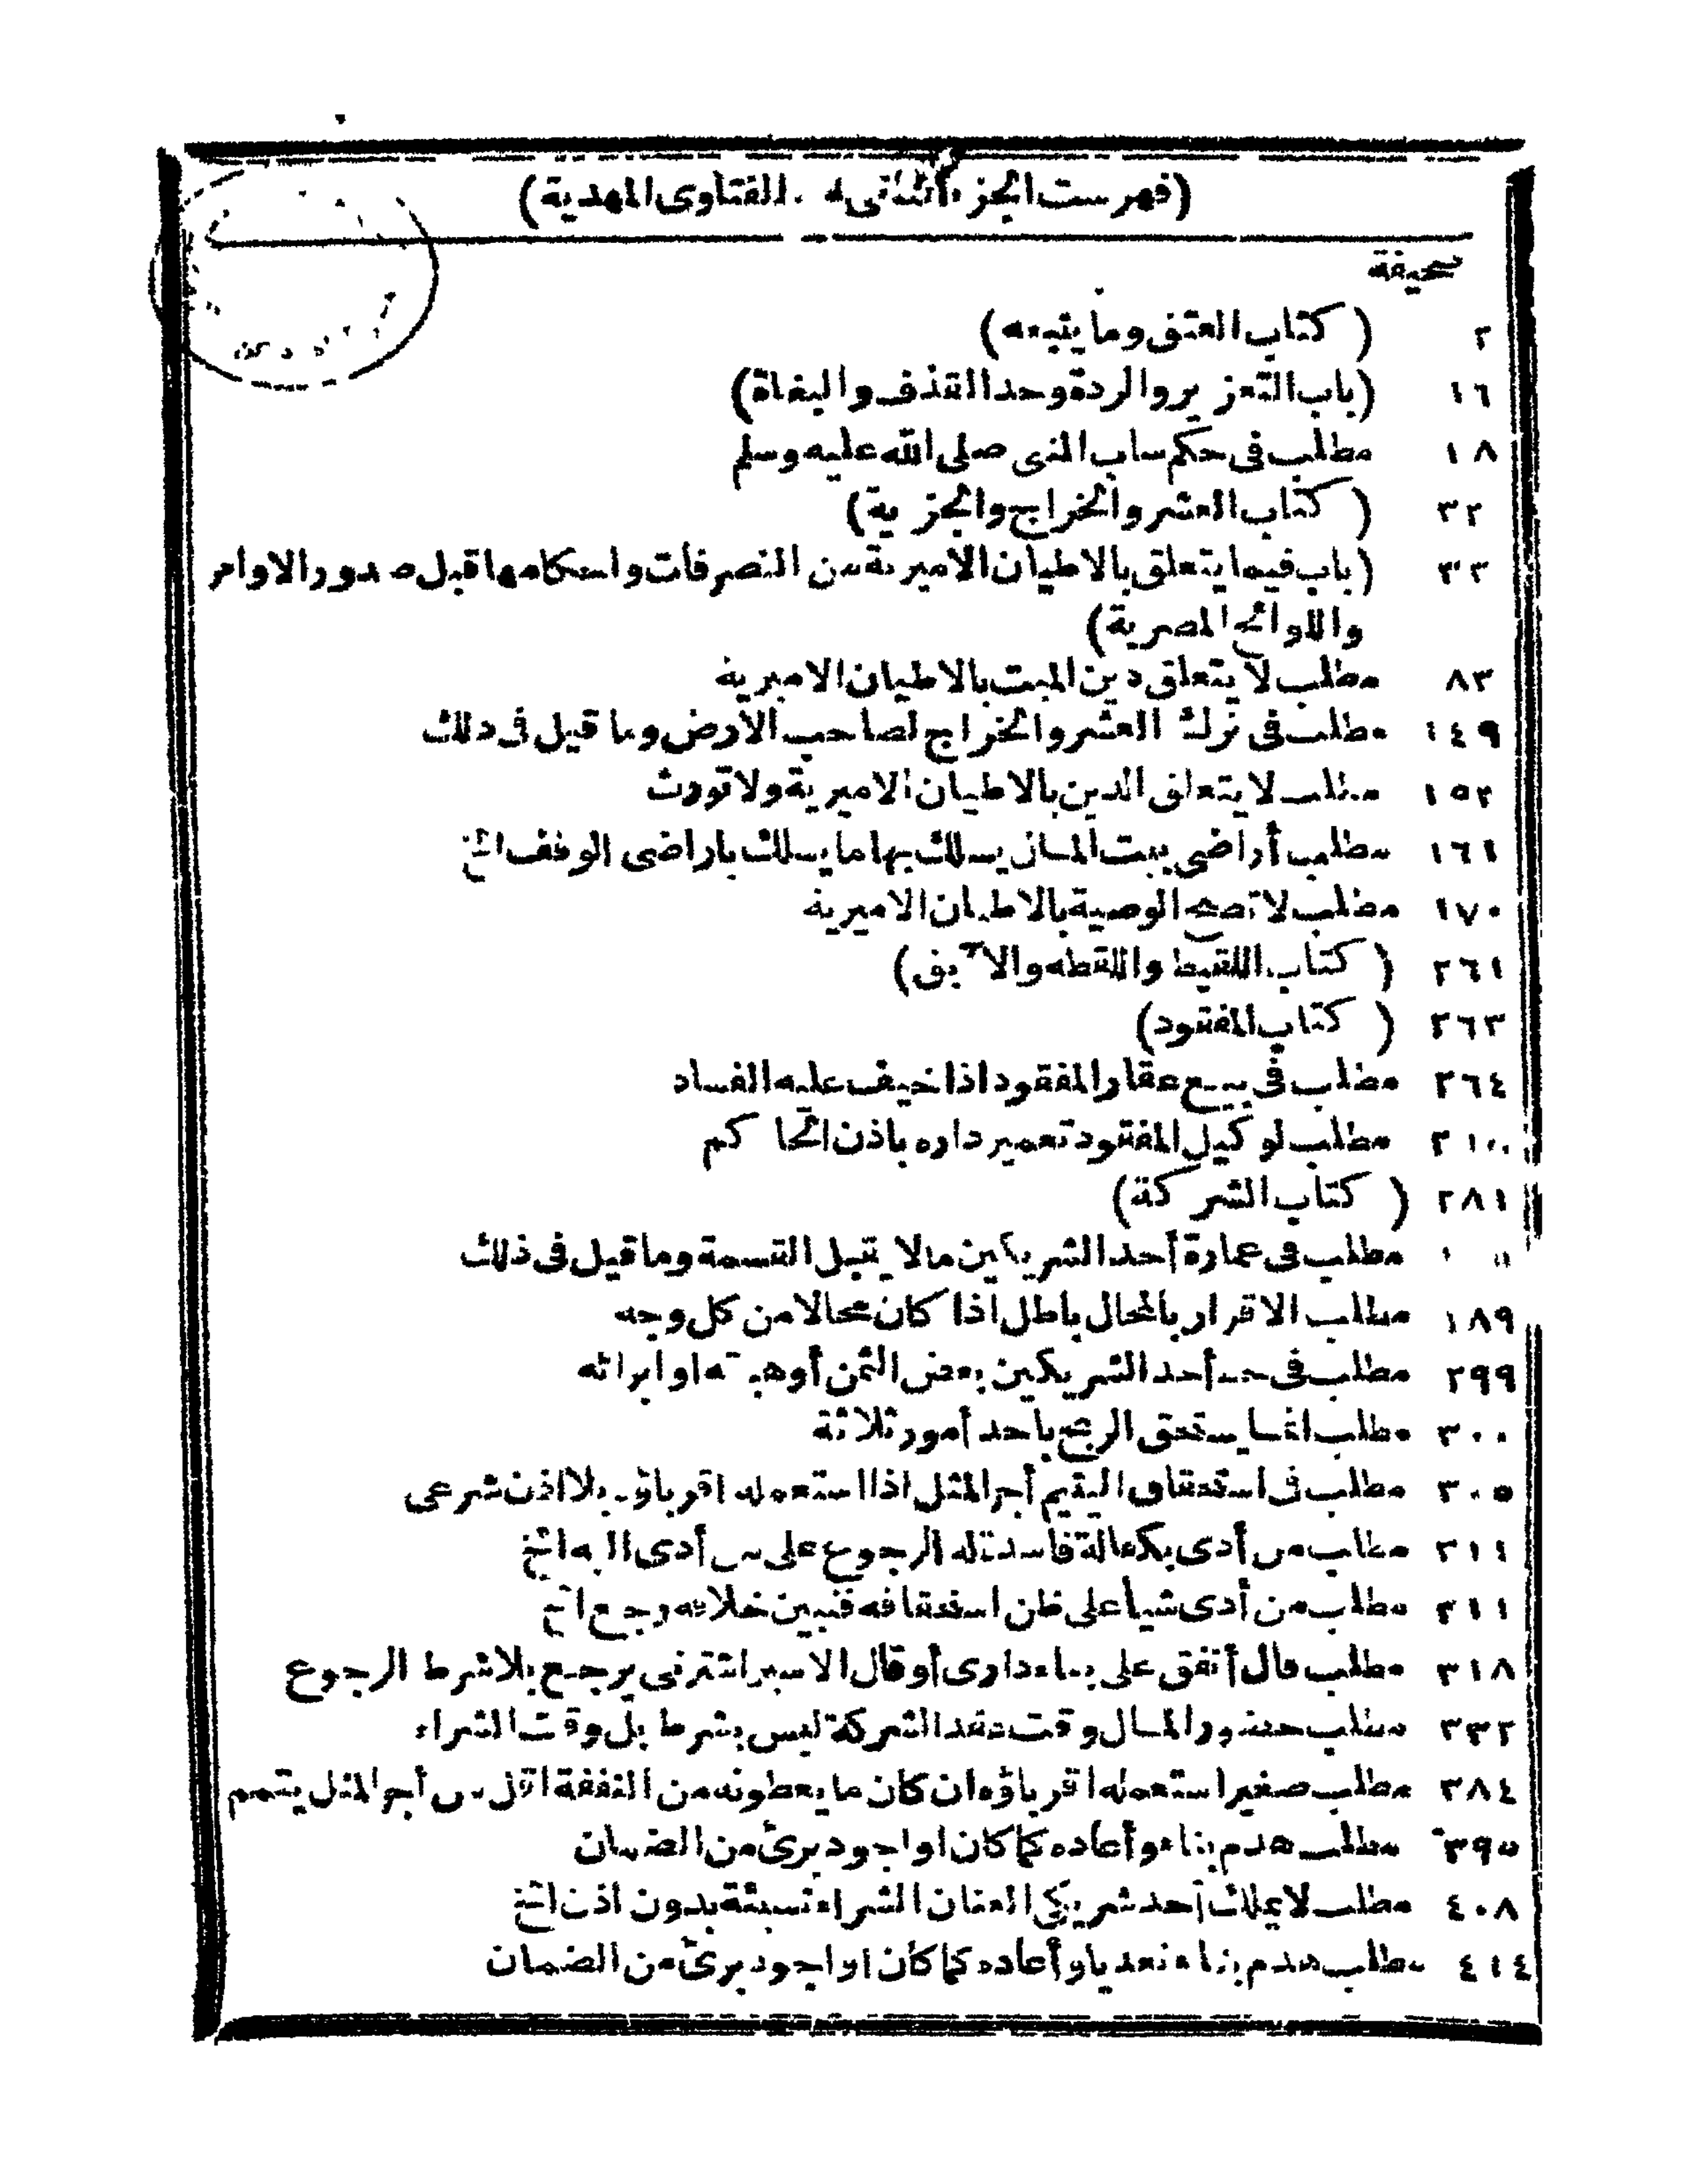 (فهرست الجزء الثاني من الفتاوى المهدية)
صحيفة
٢ (كتاب العتق وما يتبعه)
١٦ (باب التعزير والردة وحد القذف والبغاة)
١٨ مطلب فى حكم ساب النبى صلى الله عليه وسلم
٣٢ (كتاب العشر والخراج والجزية)
٣٣ (باب فيما يتعلق بالاطيان الاميرية من التصرفات واحكامها قبل صدور الاوامر
واللوائح المصرية)
٨٣ مطلب لا يتعلق دين الميت بالاطيان الاميرية
١٤٩ مطلب فى ترك العشر والخراج لصاحب الارض وما قيل فى ذلك
١٥٢ مطلب لا يتعلق الدين بالاطيان الاميرية ولا تورث
١٦١ مطلب أراضى بيت المال يسلك بها ما يسلك باراضى الوقف الخ
١٧٠ مطلب لا تصح الوصية بالاطيان الاميرية
٢٦١ (كتاب اللقيط واللقطه والآبق)
٢٦٣ (كتاب المفقود)
٢٦٤ مطلب فى بيع عقار المفقود اذا خيف عليه الفساد
مطلب لوكيل المفقود تعمير داره باذن الحاكم
٢٨١ (كتاب الشركة)
مطلب فى عمارة أحد الشريكين مالا يقبل القسمة وما قيل فى ذلك
١٨٩ مطلب الاقرار بالمحال باطل اذا كان محالا من كل وجه
٢٩٩ مطلب فى حط أحد الشريكين بعض الثمن أو هبته او ابرائه
٣٠٠ مطلب انما يستحق الربح باحد أمور ثلاثة
٣٠٥ مطلب فى استحقاق اليتيم أجر المثل اذا استعمله اقرباؤه بلا اذن شرعى
٣١١ مطلب من أدى بكفالة فاسدة له الرجوع على من أدى اليه الخ
٣١١ مطلب من أدى شيأ على ظن استحقاقه فتبين خلافه رجع الخ
٣١٨ مطلب قال أنفق على بناء دارى أو قال الاسير اشترنى يرجع بلا شرط الرجوع
٣٣٢ مطلب حضور المال وقت عقد الشركة ليس بشرط بل وقت الشراء
٣٨٤ مطلب صغير استعمله اقرباؤه ان كان ما يعطونه من النفقة اقل من أجر المثل يتمم
٣٩٥ مطلب هدم بناء وأعاده كما كان او اجود برئ من الضمان
٤٠٨ مطلب لا يملك أحد شريكى العنان الشراء نسيئة بدون اذن الخ
٤١٤ مطلب هدم بناء تعديا وأعاده كما كان او اجود برئ من الضمان